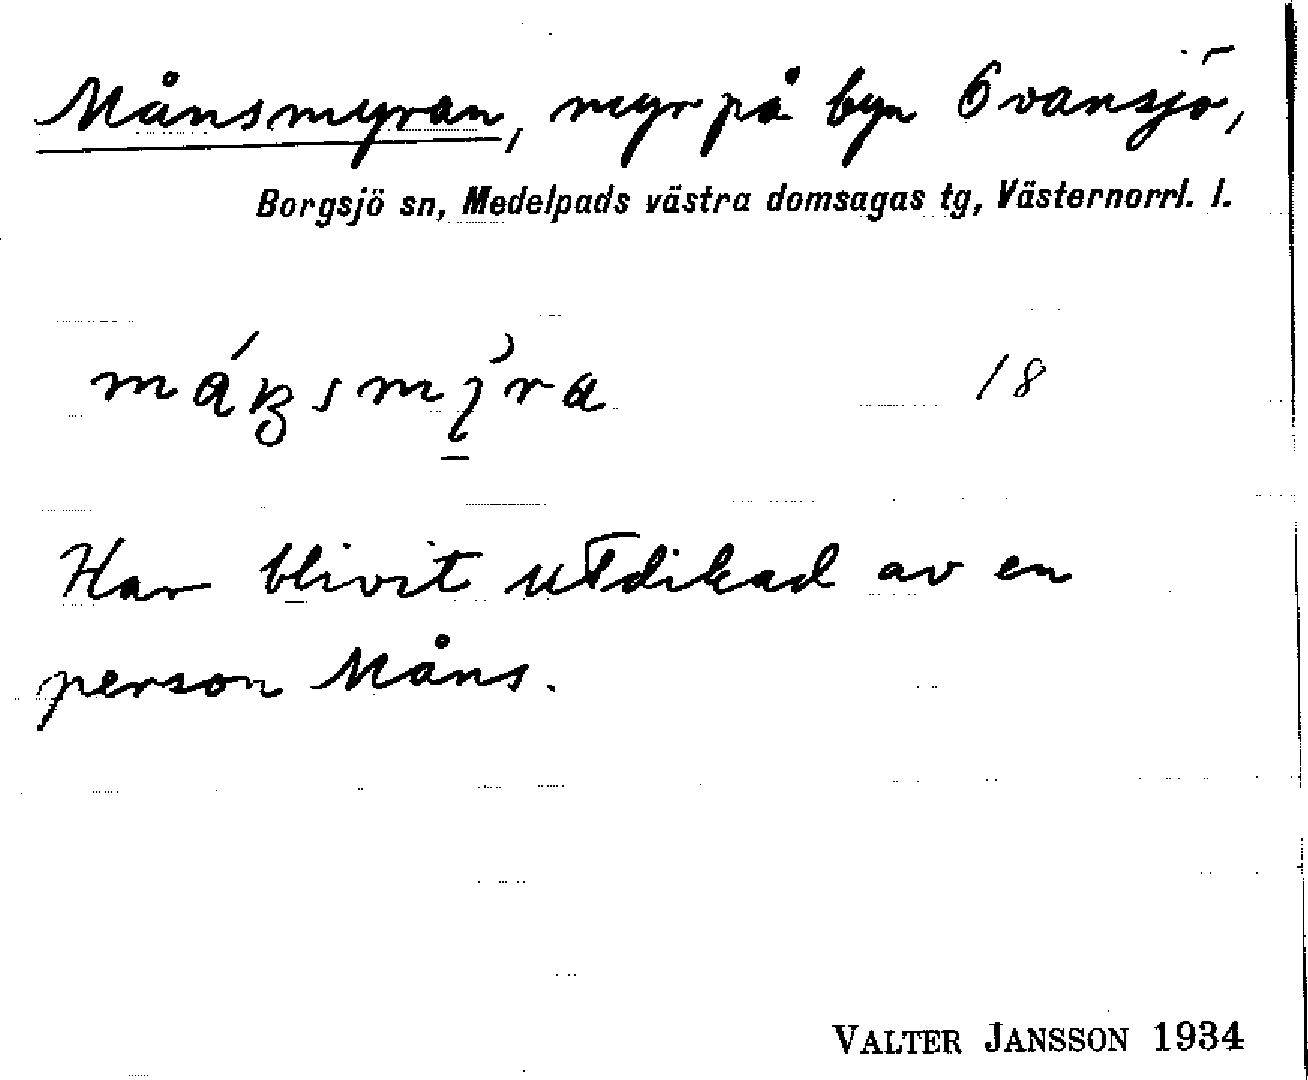 Månsmyran, myr på byn Ovansjö,
Borgsjö sn, Medelpads västra domsagas tg, Västernorrl. l.
18
Har blivit utdikad av en
person Måns.
VALTER JANSSON 1934